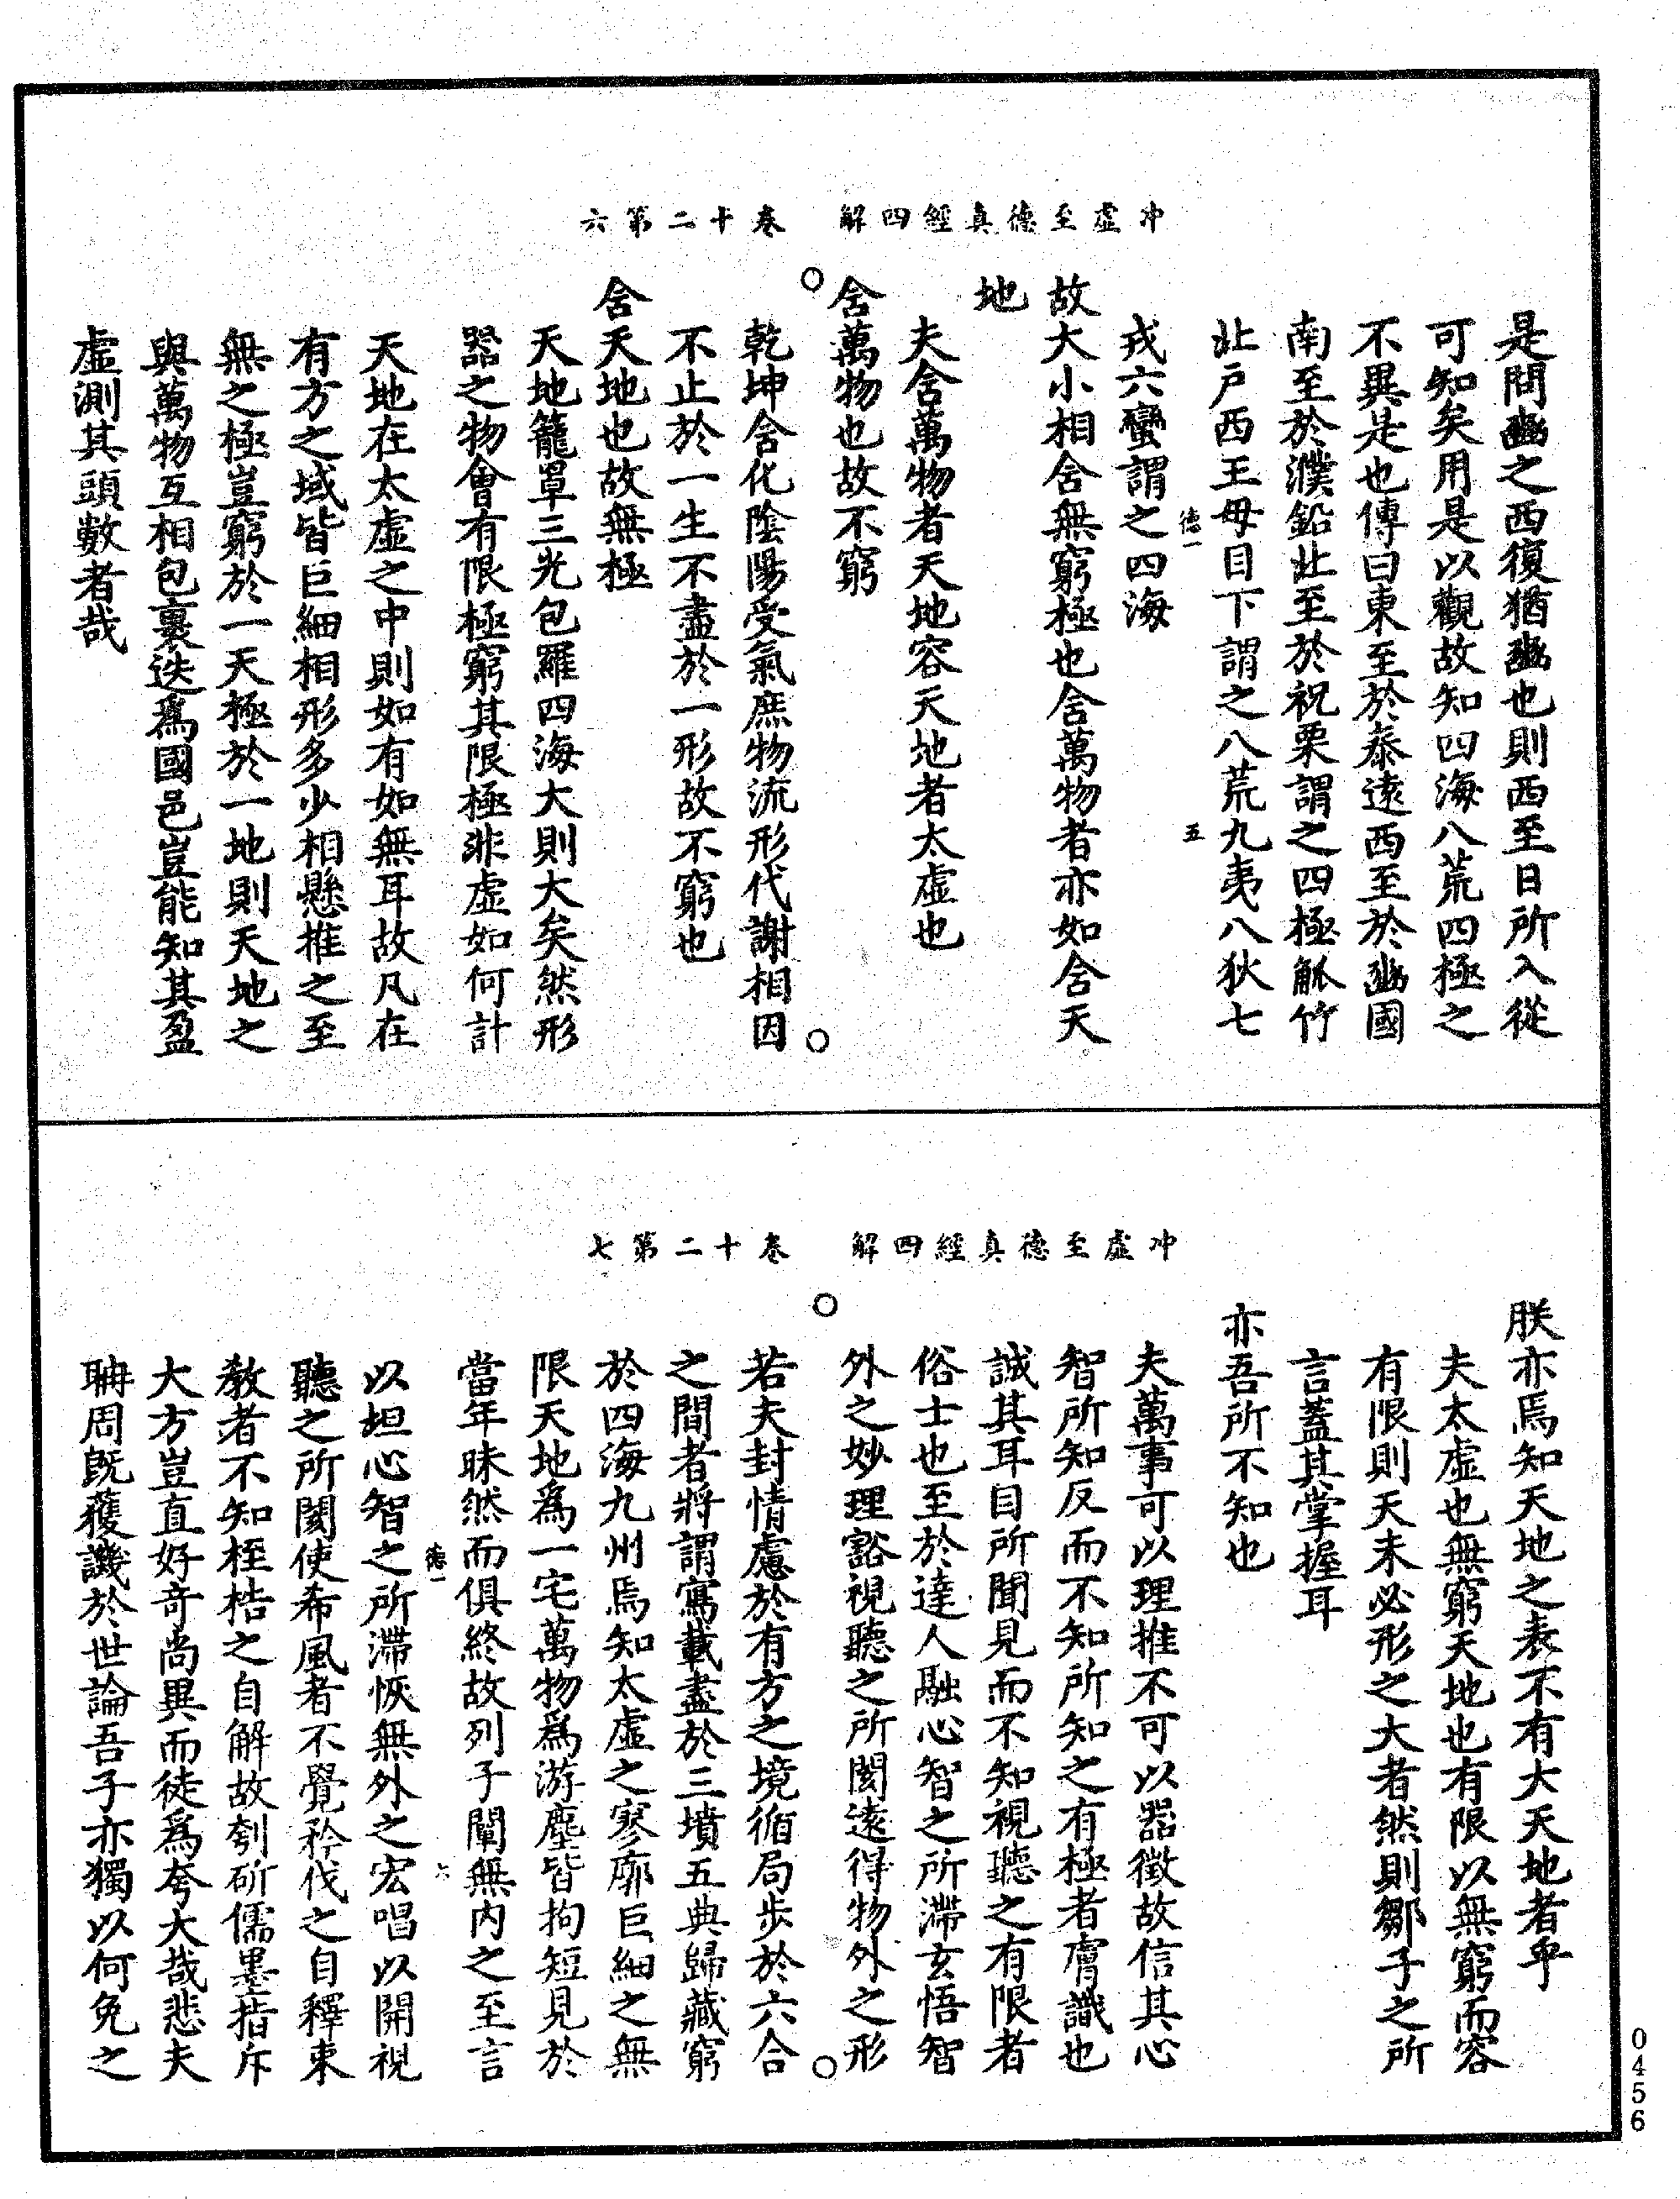 冲虛至德真經四解　卷十二第六
是問豳之西復猶豳也則西至日所入從
可知矣用是以觀故知四海八荒四極之
不異是也傳曰東至於泰遠西至於豳國
南至於濮鉛北至於祝栗謂之四極觚竹
北戶西王母日下謂之八荒九夷八狄七
德一　五
戎六蠻謂之四海
故大小相含無窮極也含萬物者亦如含天
地
夫含萬物者天地容天地者太虛也
含萬物也故不窮
乾坤含化陰陽受氣庶物流形代謝相因
不止於一生不盡於一形故不窮也
含天地也故無極
天地籠罩三光包羅四海大則大矣然形
器之物會有限極窮其限極非虛如何計
天地在太虛之中則如有如無耳故凡在
有方之域皆巨細相形多少相懸推之至
無之極豈窮於一天極於一地則天地之
與萬物互相包裹迭爲國邑豈能知其盈
虛測其頭數者哉
冲虛至德真經四解　卷十二第七
朕亦焉知天地之表不有大天地者乎
夫太虛也無窮天地也有限以無窮而容
有限則天未必形之大者然則鄒子之所
言蓋其掌握耳
亦吾所不知也
夫萬事可以理推不可以器徵故信其心
智所知反而不知所知之有極者膚識也
誠其耳目所聞見而不知視聽之有限者
俗士也至於達人融心智之所滯玄悟智
外之妙理豁視聽之所閡遠得物外之形
若夫封情慮於有方之境循局步於六合
之間者將謂寫載盡於三墳五典歸藏窮
於四海九州焉知太虛之寥廓巨細之無
限天地爲一宅萬物爲游塵皆拘短見於
當年昧然而俱終故列子闡無內之至言
德一　六
以坦心智之所滯恢無外之宏唱以開視
聽之所閡使希風者不覺矜伐之自釋束
教者不知桎梏之自解故刳斫儒墨指斥
大方豈直好奇尚異而徒爲夸大哉悲夫
聃周旣獲譏於世論吾子亦獨以何免之
0456